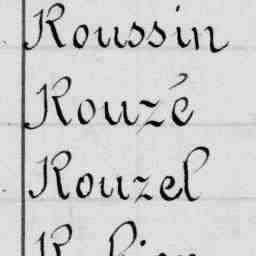 Roussin
Rouzé
Rouzel